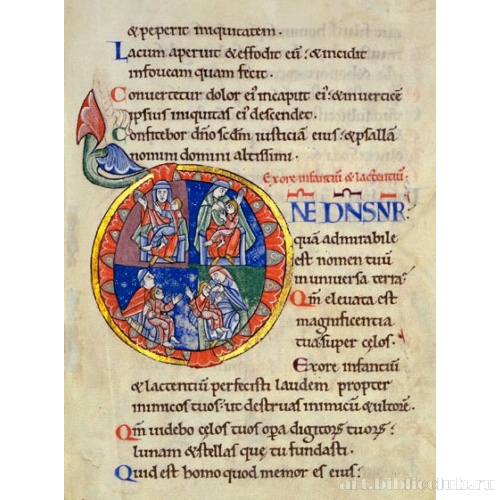 & peperit iniquitatem.
Lacum aperuit & effodit eu̅: & incidit
infoveam quam fecit.
Convertetur dolor ei' incaput ei': & in vertice̅
ipsius iniquitas ei' descende&.
Confitebor dn̅o sc̅dm iusticiam eius: & psalla̅
nomini domini altissimi.
Exore infantiu̅ & lactentiu̅.
NE DN̅S NR̅
qua̅ admirabile
est nomen tuu̅
inuniversa terra.
Qm̅ elevata est
magnificentia
tua super cęlos.
Exore infantiu̅
& lactentiu̅ perfecisti laudem propter
inimicos tuos: ut destruas inimicu̅ & ultore̅.
Qm̅ videbo cęlos tuos opa digitor tuor:
lunam & stellas quę tu fundasti.
Quid est homo quod memor es eius:
art.biblioclub.ru